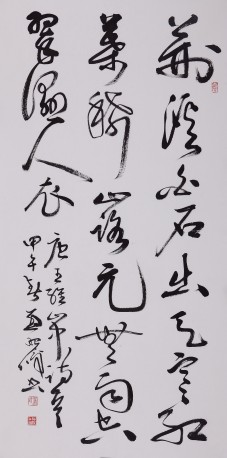 荆溪白石出天寒紅
葉稀山路元無雨空
翠濕人衣
唐王維山中詩
甲午